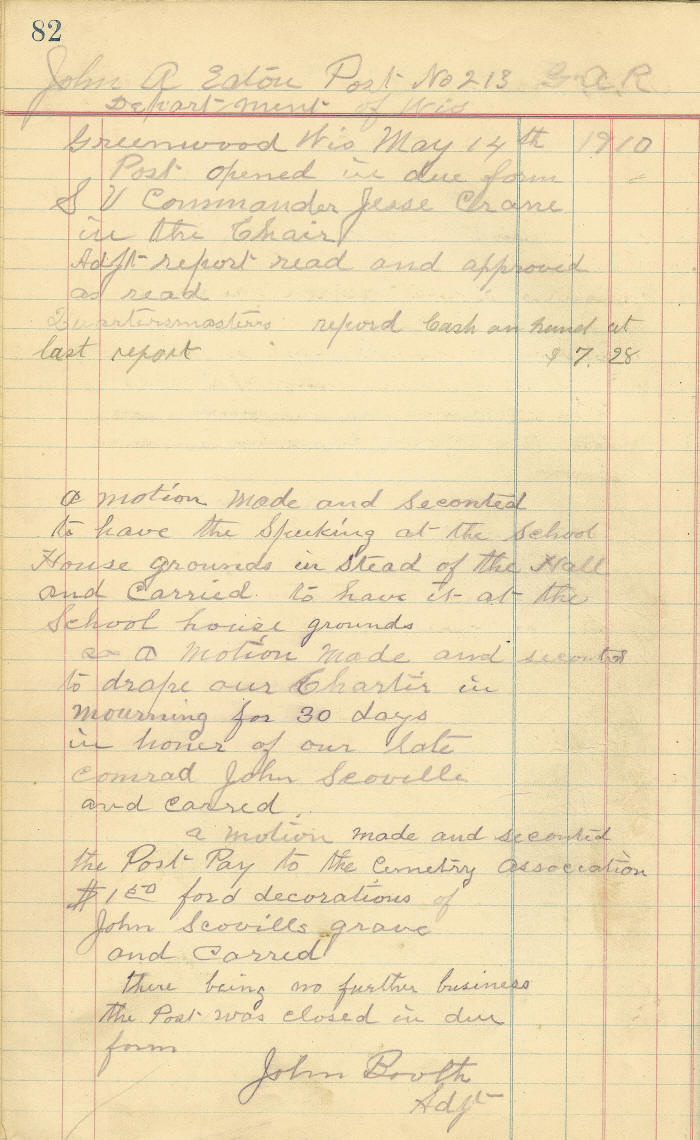 82
John A Eaton Post No 213 G.A.R
Department of Wis
Greenwood Wis May 14th 1910
Post opened in due form
S V Commander Jesse Crane
in the Chair
Adjt report read and approved
as read
Quartersmasters repord Cash on hand at
last report $ 7.28
a motion Made and Seconted
to have the Speeking at the School
House grounds in Stead of the Hall
and Carried to have it at the
School house grounds
a Motion Made and seconted
to drape our Charter in
Mourning for 30 days
in honer of our late
Comrad John Scoville
and Carred.
a motion made and seconted
the Post Pay to the Cemetry Association
$1 50 ford decorations of
John Scovills grave
and Carred
there being no further business
the Post was closed in due
form
John Booth
Adjt